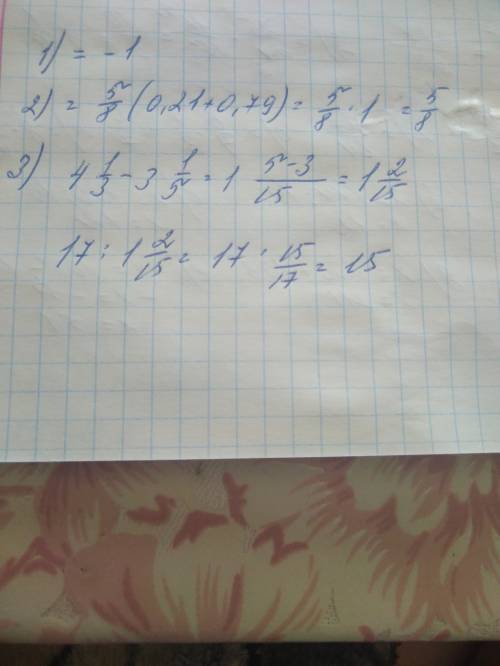 1) = -1
2) = 5/8 (0,21+0,79) = 5/8 · 1 = 5/8
3) 4 1/3 - 3 1/5 = 1 5-3/15 = 1 2/15
17 : 1 2/15 = 17 · 15/17 = 15